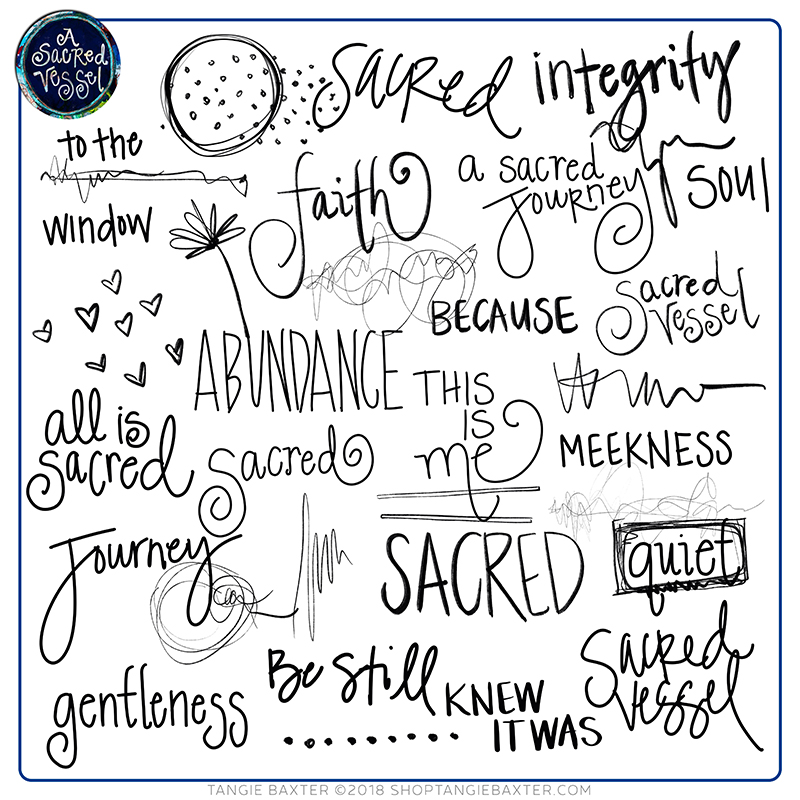 A
Sacred
Vessel
Sacred
integrity
to the
window
faith
a sacred
Journey
Soul
BECAUSE
Sacred
Vessel
ABUNDANCE
THIS
IS
me
all is
sacred
Sacred
MEEKNESS
Journey
SACRED
quiet
gentleness
Be Still
KNEW
IT WAS
Sacred
Vessel
TANGIE BAXTER ©2018 SHOPTANGIEBAXTER.COM